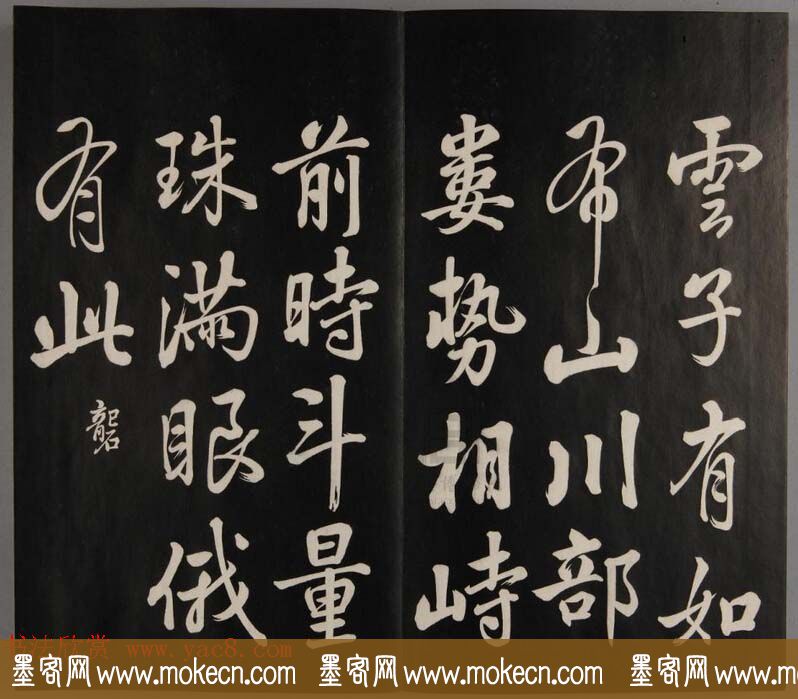 雲子有如
布山川部
婁勢相峙
前時斗量
珠滿眼俄
有此
書法欣赏 www.yac8.com
墨客网 www.mokecn.com 墨客网 www.mokecn.com 墨客网 www.mokecn.com